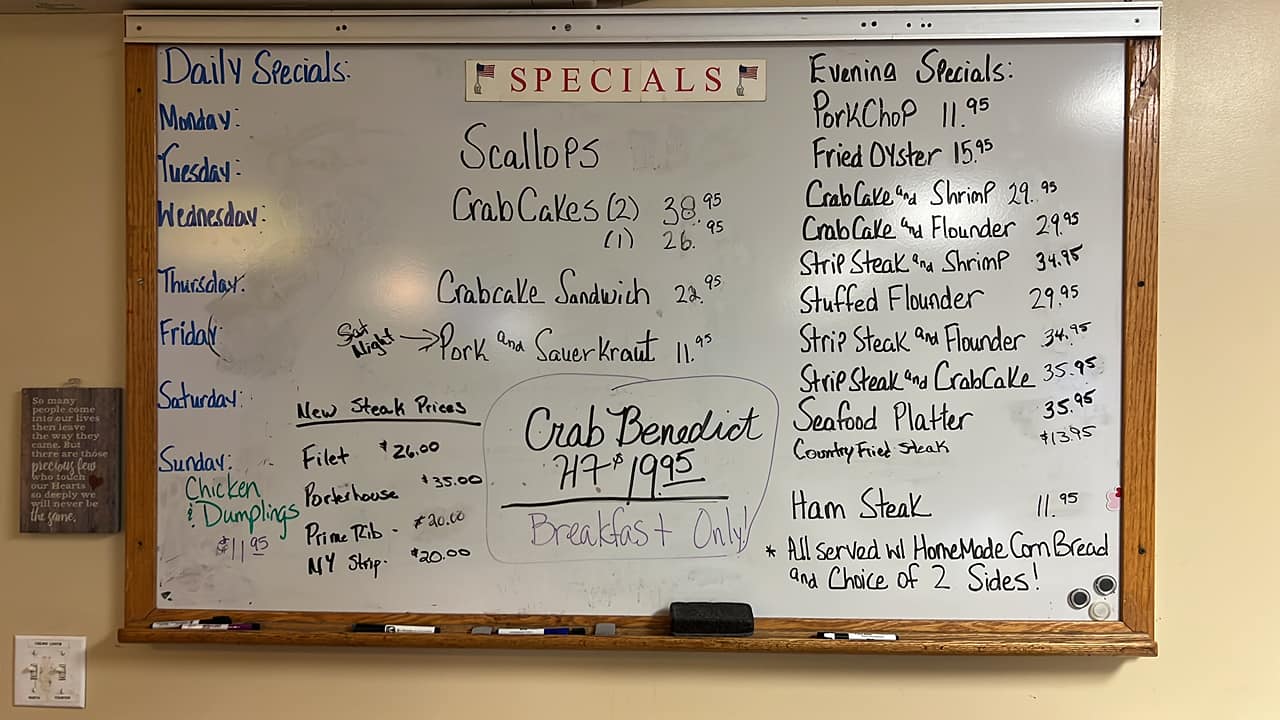 SPECIALS
Daily Specials:
Monday:
Tuesday:
Wednesday:
Thursday:
Friday
Saturday:
Sunday:
Chicken
& Dumplings
$11.95
Scallops
CrabCakes (2) 38.95
(1) 26.95
Crabcake Sandwich 22.95
Sat Night → Pork and Sauerkraut 11.95
New Steak Prices
Filet $26.00
Porterhouse $35.00
Prime Rib - $20.00
NY Strip - $20.00
Crab Benedict
HF $19.95
Breakfast Only!
Evening Specials:
PorkChop 11.95
Fried Oyster 15.95
CrabCake and Shrimp 29.95
CrabCake and Flounder 29.95
Strip Steak and Shrimp 34.95
Stuffed Flounder 29.95
Strip Steak and Flounder 34.95
Strip Steak and CrabCake 35.95
Seafood Platter 35.95
Country Fried Steak $13.95
Ham Steak 11.95
* All served w/ HomeMade Corn Bread
and Choice of 2 Sides!
So many
people come
into our lives
then leave
the way they
came. But
there are those
precious few
who touch
our Hearts
so deeply we
will never be
the same.